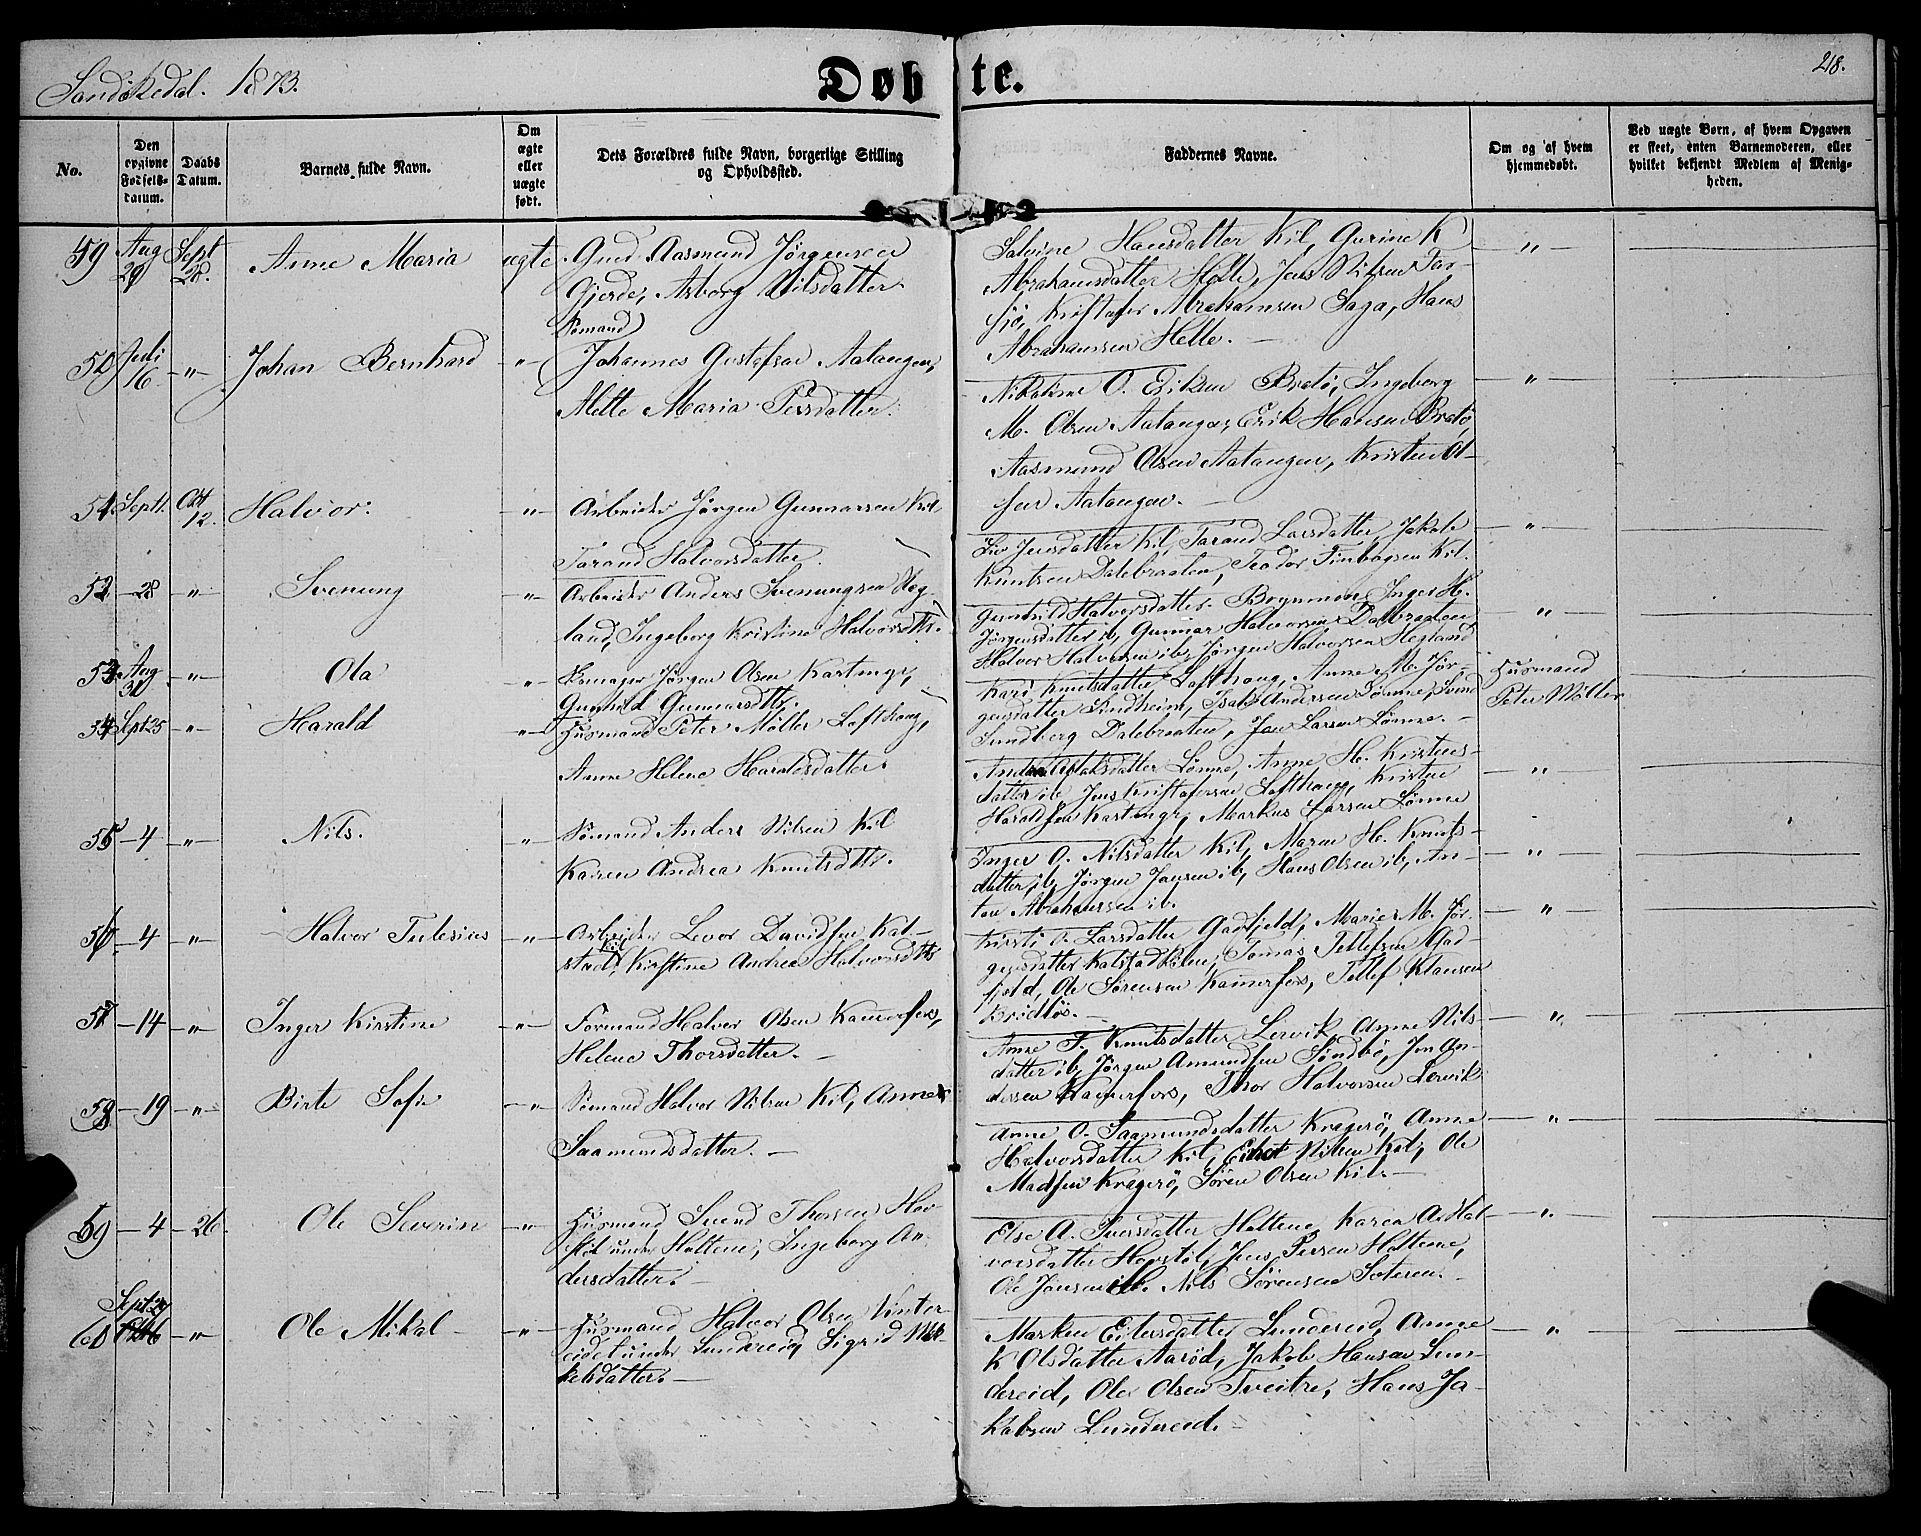 Sandøkedal. 1873.
Døbte.
218.
No.
Den opgivne Fødselsdatum.
Daabs Datum.
Barnets fulde Navn.
Om ægte eller uægte født.
Dets Forældres fulde Navn, borgerlige Stilling og Opholdssted.
Faddernes Navne.
Om og af hvem hjemmedøbt.
Ved uægte Børn, af hvem Opgaven er skeet, enten Barnemoderen, eller hvilket bekjendt Medlem af Menigheden.
49 Aug 29 Sept 28. Anne Maria ægte Gmd. Aasmund Jørgensen
Gjerde, Asborg Nilsdatter.
Salvine Hansdatter Kil, Gurine K
Abrahamsdatter Helle, Jens Nilsen Far-
sjø, Kristofer Abrahamsen Saga, Hans
Abrahamsen Helle.
50 Juli 16 -"- Johan Bernhard -"- Sømand
Johannes Gustafsen Aatangen,
Mette Maria Persdatter.
Nikoline O. Eiksen Bratø, Ingeborg
M. Olsen Aatangen, Erik Hansen Bratø,
Aasmund Olsen Aatangen, Kristen Ol-
sen Aatangen.
51 Sept 1. Okt 12. Halvor. -"- Arbeider Jørgen Gunnarsen Kil
Tarand Halvorsdatter.
Liv Jensdatter Kil, Tarand Larsdatter, Jakob
Knutsen Dalebraaten, Teodor Finbogsen Kil.
52 -28 -"- Svenung -"- Arbeider Anders Svenungsen Heg-
land, Ingeborg Kristine Halvorsdtr.
Gunhild Halvorsdatter Brynmon, Inger H.
Jørgensdatter ib, Gunnar Halvorsen Dalebraaten
Halvor Halvorsen ib, Jørgen Halvorsen Hegland
53 Aug 31 -"- Ola -"- Jørgen Olsen Kastinge,
Gunhild Gunnarsdtr.
Kari Knutsdatter Lofthaug, Anne M. Jør-
gensdatter Lindheim, Isak Andersen Lønne, Svend
Sundberg Dalebraaten, Jan Larsen Lønne.
54 Sept 25 -"- Harald -"- Husmand Peter Møller Lofthaug,
Anne Helene Haraldsdatter.
Husmand
Peter Møller
Andrea Isaksdatter Lønne, Anne H. Kristens-
datter ib, Jens Kristofersen Lofthaug, Kristen
Haraldsen Kastinge, Markus Larsen Lønne
55 -4 -"- Nils. -"- Sømand Anders Nilsen Kil
Karen Andrea Knutsdtr.
Inger O. Nilsdatter Kil, Maren H. Knuts-
datter ib, Jørgen Jansen ib, Hans Olsen ib, An-
ton Abrahamsen ib.
56 -4 -"- Halvor Tulesius -"- Arbeider Levor Davidsen Kal-
stadkil, Kirstine Andrea Halvorsdtr
Kirsti O. Larsdatter Gadfjeld, Marie M. Jør-
gensdatter Kalstadkilen, Tomas Tellefsen Gad-
fjeld, Ole Sørensen Kamerfors, Tellef Klausen
57 -14 -"- Inger Kirstine -"- Formand Halvor Olsen Kamerfors,
Helene Thorsdatter.
Anne T. Knutsdatter Lervik, Anne Nils-
datter ib, Jørgen Amundsen Søndbø, Jon An-
dersen Kamerfors, Thor Halvorsen Lervik
58 -19 -"- Birte Sofie -"- Sømand Halvor Nilsen Kil, Anne
Saamundsdatter.
Anne O. Saamundsdatter Kragerø, Anne
Halvorsdatter Kil, Nilsen Kil, Ole
Madsen Kragerø, Søren Olsen Kil.
59 -4 -26. Ole Severin -"- Husmand Svend Thorsen Hav-
støl under Haltene, Ingeborg An-
dersdatter.
Else A. Iversdatter Haltene, Karen A. Hal-
vorsdatter Havstøl, Jens Persen Haltene,
Ole Jonsen ib. Nils Sørensen
60 Sept 27 -"- Ole Mikal -"- Husmand Halvor Olsen Vinter-
eidet under Lundereid, Sigrid Mik-
kelsdatter.
Maren Eilersdatter Lundereid, Anne
K Olsdatter Aarød, Jakob Hansen Lun-
dereid, Ole Olsen Tveitre, Hans Ja-
kobsen Lundereid.